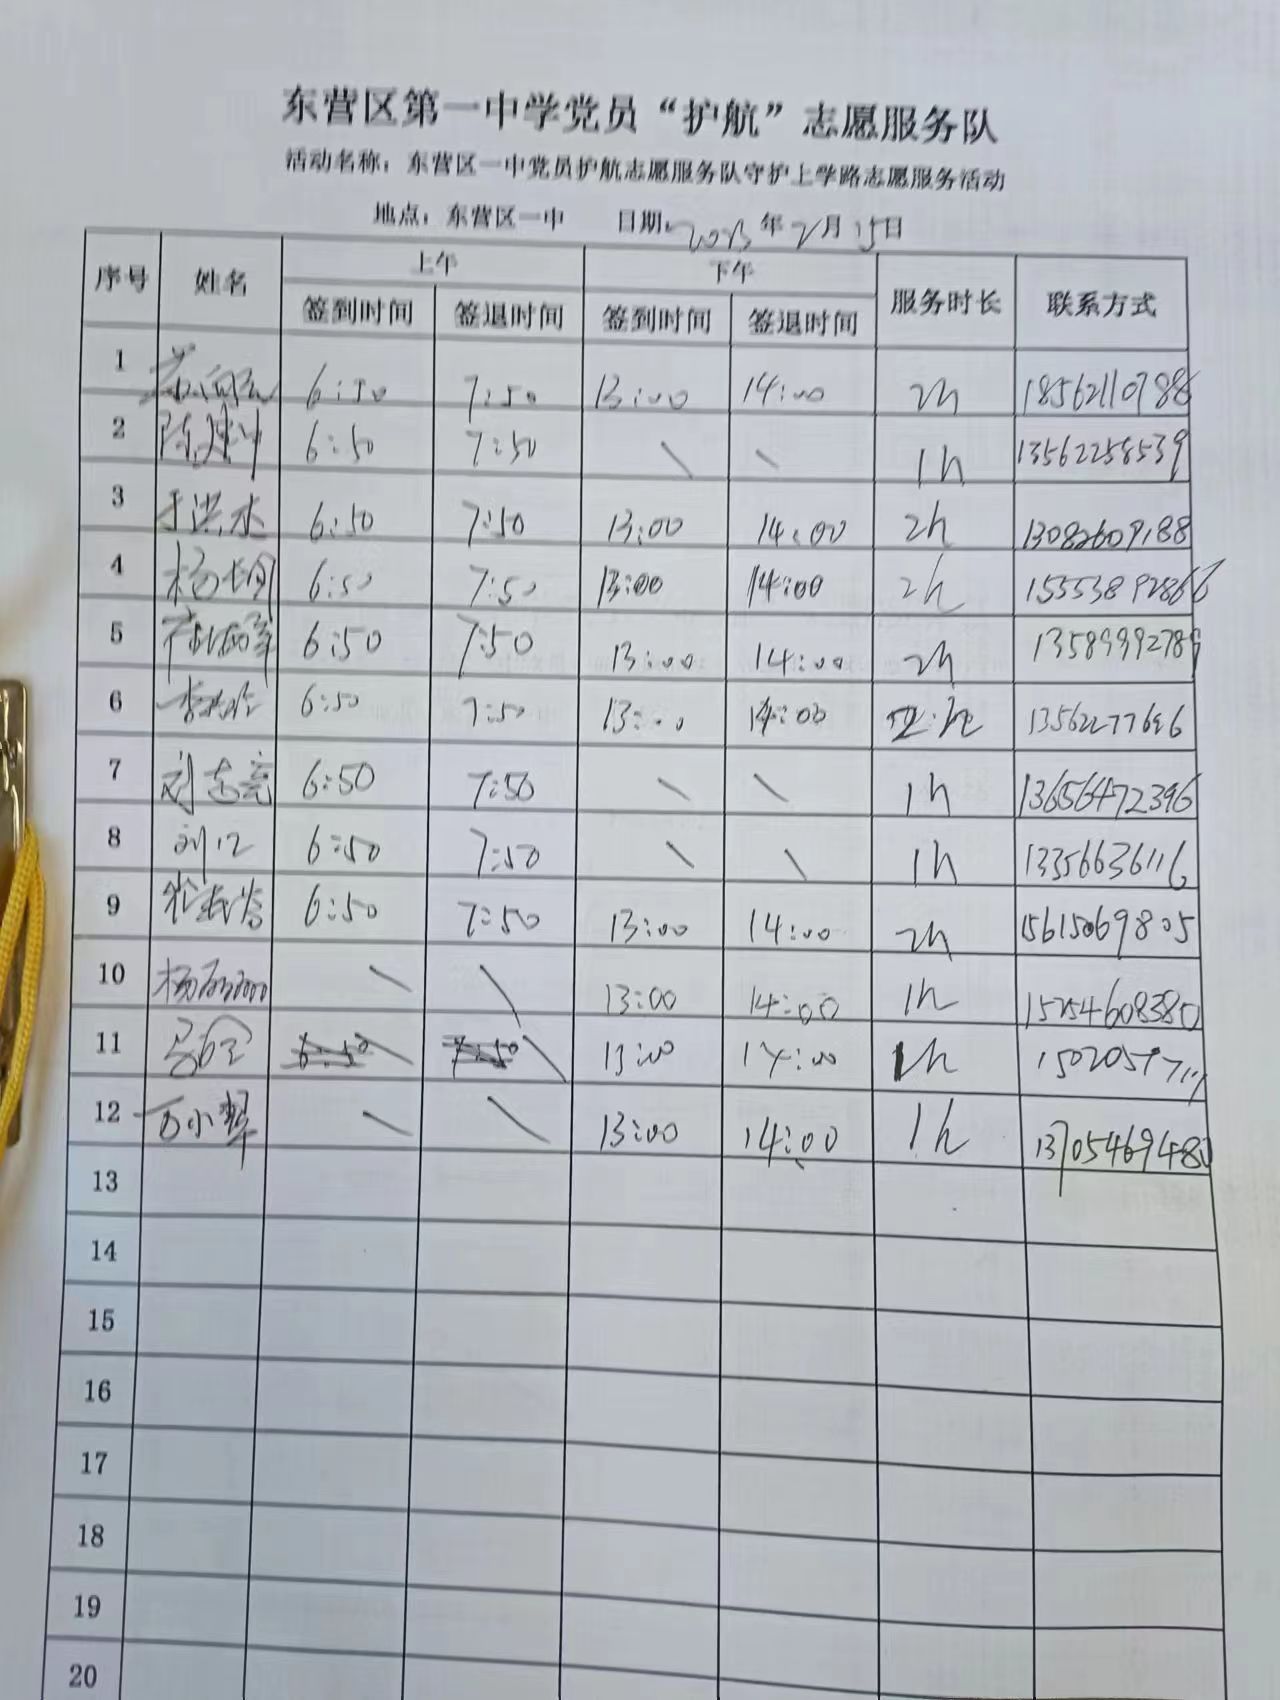 东营区第一中学党员“护航”志愿服务队
活动名称：东营区一中党员护航志愿服务队守护上学路志愿服务活动
地点：东营区一中 日期：2023年2月15日
序号 姓名 上午 下午 服务时长 联系方式
签到时间 签退时间 签到时间 签退时间
1 6:50 7:50 13:00 14:00 2h 18562110788
2 陈建冲 6:50 7:50 \ \ 1h 13562258539
3 于洪水 6:50 7:50 13:00 14:00 2h 13082609188
4 6:50 7:50 13:00 14:00 2h 15553892866
5 6:50 7:50 13:00 14:00 2h 13589992789
6 6:50 7:50 13:00 14:00 13562277696
7 刘志亮 6:50 7:50 \ \ 1h 13656472396
8 6:50 7:50 \ \ 1h 13356636116
9 6:50 7:50 13:00 14:00 2h 15615069805
10 杨丽丽 \ \ 13:00 14:00 1h 15254608380
11 \ \ 13:00 14:00 1h
12 万小翠 \ \ 13:00 14:00 1h 13705469480
13
14
15
16
17
18
19
20